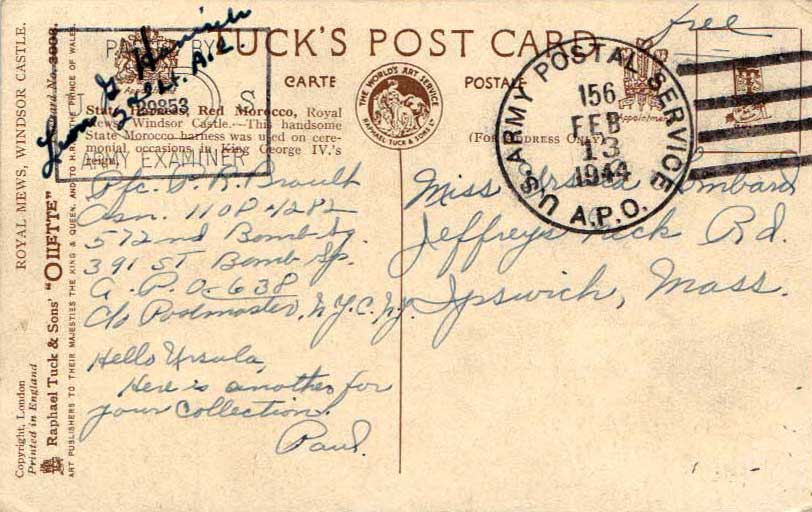 TUCK'S POST CARD
CARTE POSTALE
PASSED BY
39853
S
ARMY EXAMINER
2nd Lt. A.C.
THE WORLD'S ART SERVICE
RAPHAEL TUCK & SONS LD
State Harness, Red Morocco, Royal
Mews, Windsor Castle.—This handsome
State Morocco harness was used on cere-
monial occasions in King George IV.'s
reign.
(FOR ADDRESS ONLY)
Appointment
free
U.S. ARMY POSTAL SERVICE
156
FEB
13
1944
A.P.O.
Pfc. P. R. Brault
Asn. 11084282
572nd Bomb Sq.
391ST Bomb Gp.
A.P.O. 638
c/o Postmaster, N.Y.C., N.Y.
Hello Ursula,
Here is another for
your collection.
Paul.
Miss Ursula Lombard
Jeffreys Neck Rd.
Ipswich, Mass.
ROYAL MEWS, WINDSOR CASTLE.
Copyright, London
Printed in England
Raphael Tuck & Sons' "OILETTE"
ART PUBLISHERS TO THEIR MAJESTIES THE KING & QUEEN, AND TO H.R.H. THE PRINCE OF WALES.